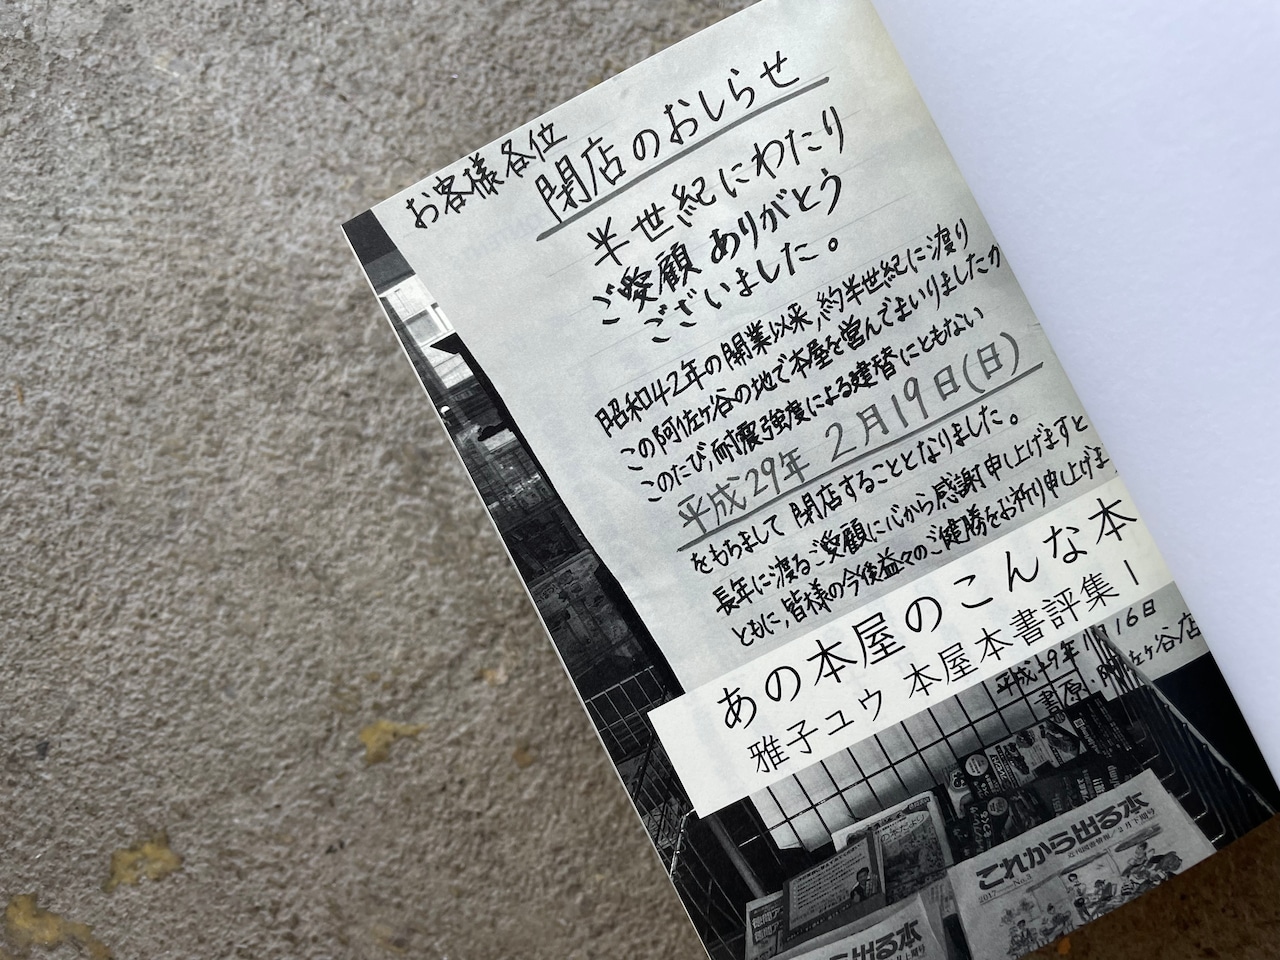 お客様各位
閉店のおしらせ
半世紀にわたり
ご愛顧ありがとう
ございました。
昭和42年の開業以来、約半世紀に渡り
この阿佐ヶ谷の地で本屋を営んでまいりましたが
このたび、耐震強度による建替にともない
平成29年 2月19日(日)
をもちまして 閉店することとなりました。
長年に渡るご愛顧に心から感謝申し上げますと
ともに、皆様の今後益々のご健勝をお祈り申し上げま
あの本屋のこんな本
雅子ユウ 本屋本書評集 I
平成29年1月16日
書原 阿佐ヶ谷店
これから出る本
近刊図書情報/2月下期号
2017 No.3
の本だより
から出る本